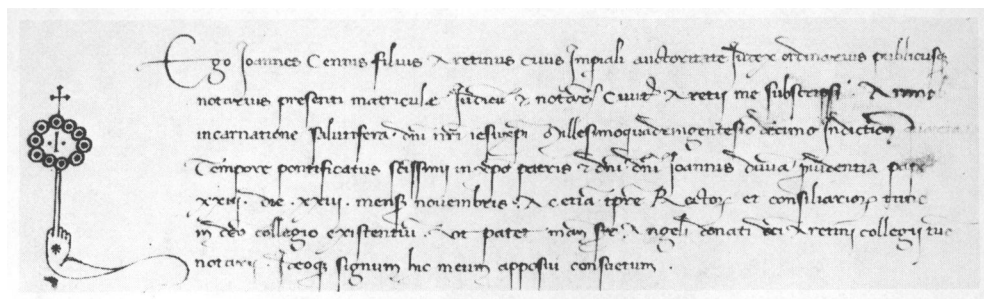 Ego Joannes Cennis filius Aretinus civis Imperiali auctoritate Judex ordinarius publicusque
notarius presenti matriculæ Judicum & notariorum Civitatis Aretii me subscripsi. Anno
incarnatione salutifera dni nri iesuxpi Millesimoquadringentesimo decimo Indictione quarta
Tempore pontificatus sctissimi in xpo patris & dni dni Joannis divina providentia pape
xxiij. die .xxvij. mensis novembris. Ac etiam tempore Rectorum et consiliariorum tunc
in dco collegio existentium. Ut patet manu ser Angeli donati dci Aretini collegii tunc
notarij. Ideoque signum hic meum apposui consuetum.